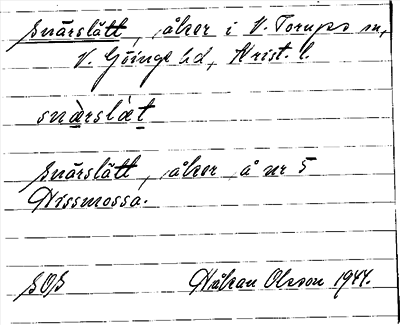 Snårslätt, åker i V. Torups sn,
V. Göinge hd, Krist. l.
snàrslæt
Snårslätt, åker å nr 5
Nissmossa.
SOS Håkan Olsson 1944.